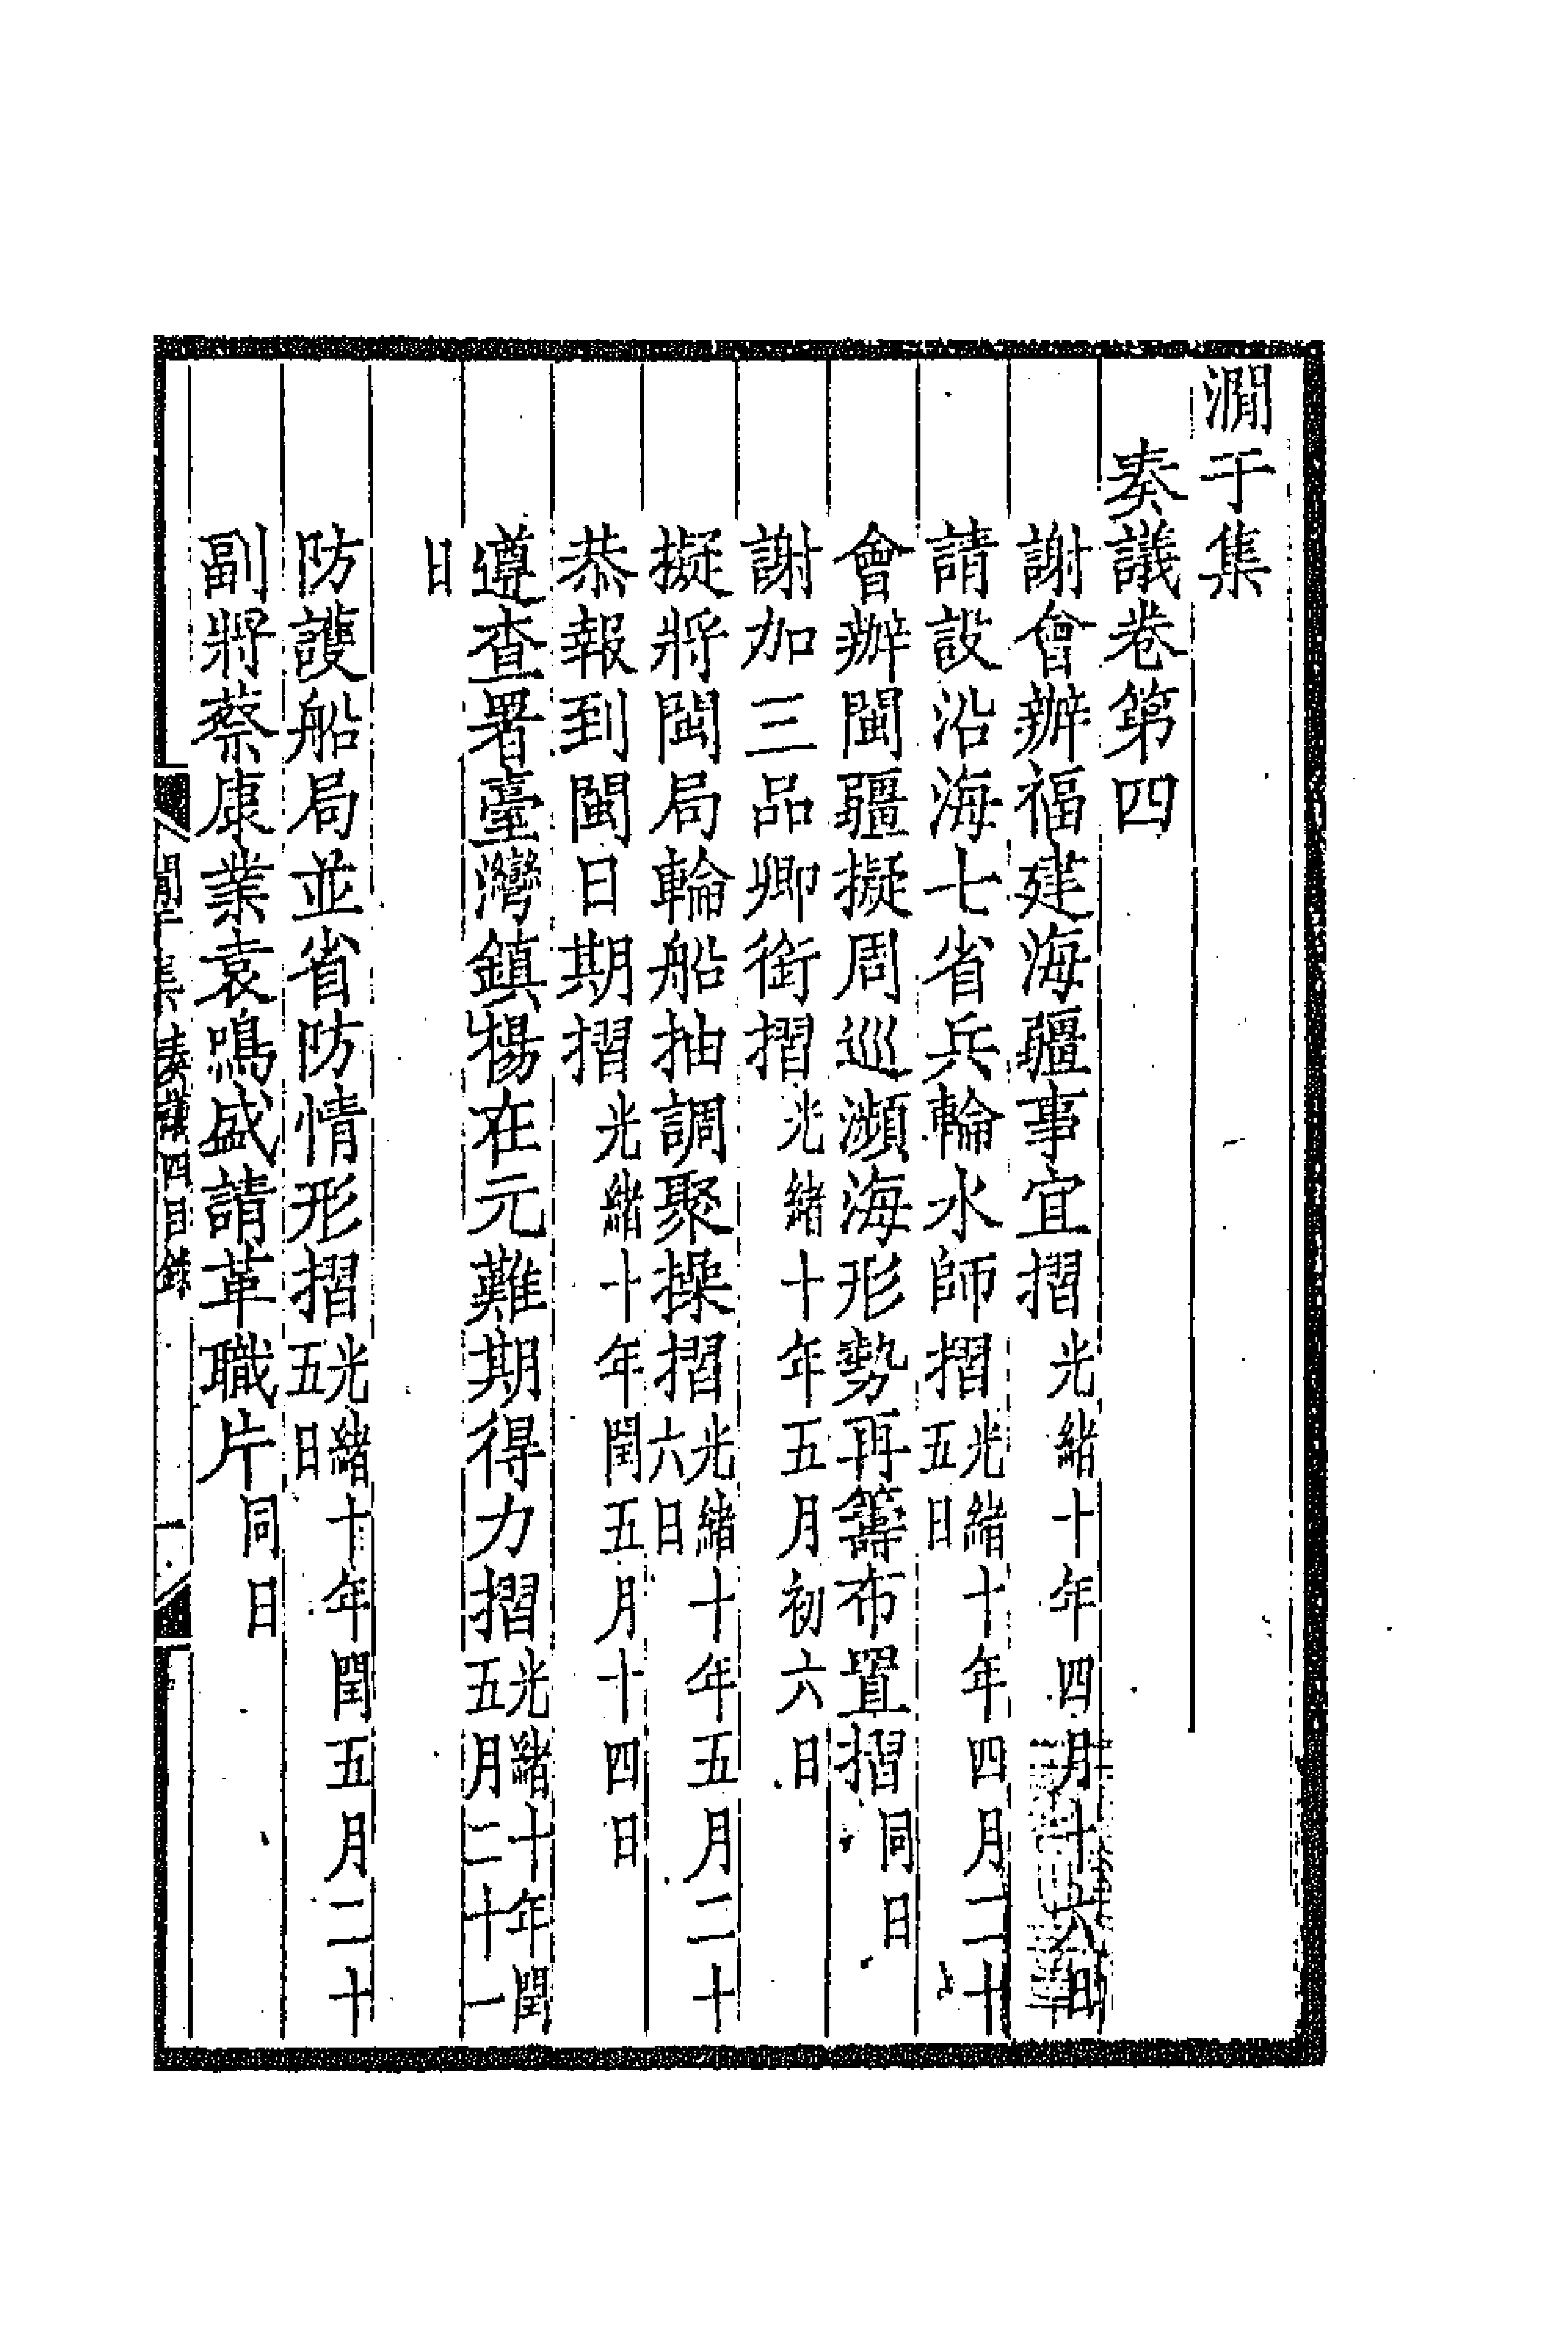 澗于集
奏議卷第四
謝會辦福建海疆事宜摺光緒十年四月十六日
請設沿海七省兵輪水師摺光緒十年四月二十五日
會辦閩疆擬周巡瀕海形勢再籌布置摺同日
謝加三品卿銜摺光緒十年五月初六日
擬將閩局輪船抽調聚操摺光緒十年五月二十六日
恭報到閩日期摺光緒十年閏五月十四日
遵查署臺灣鎮楊在元難期得力摺光緒十年閏五月二十一
日
防護船局並省防情形摺光緒十年閏五月二十五日
副將蔡康業袁鳴盛請革職片同日
澗于集奏議四目錄 一